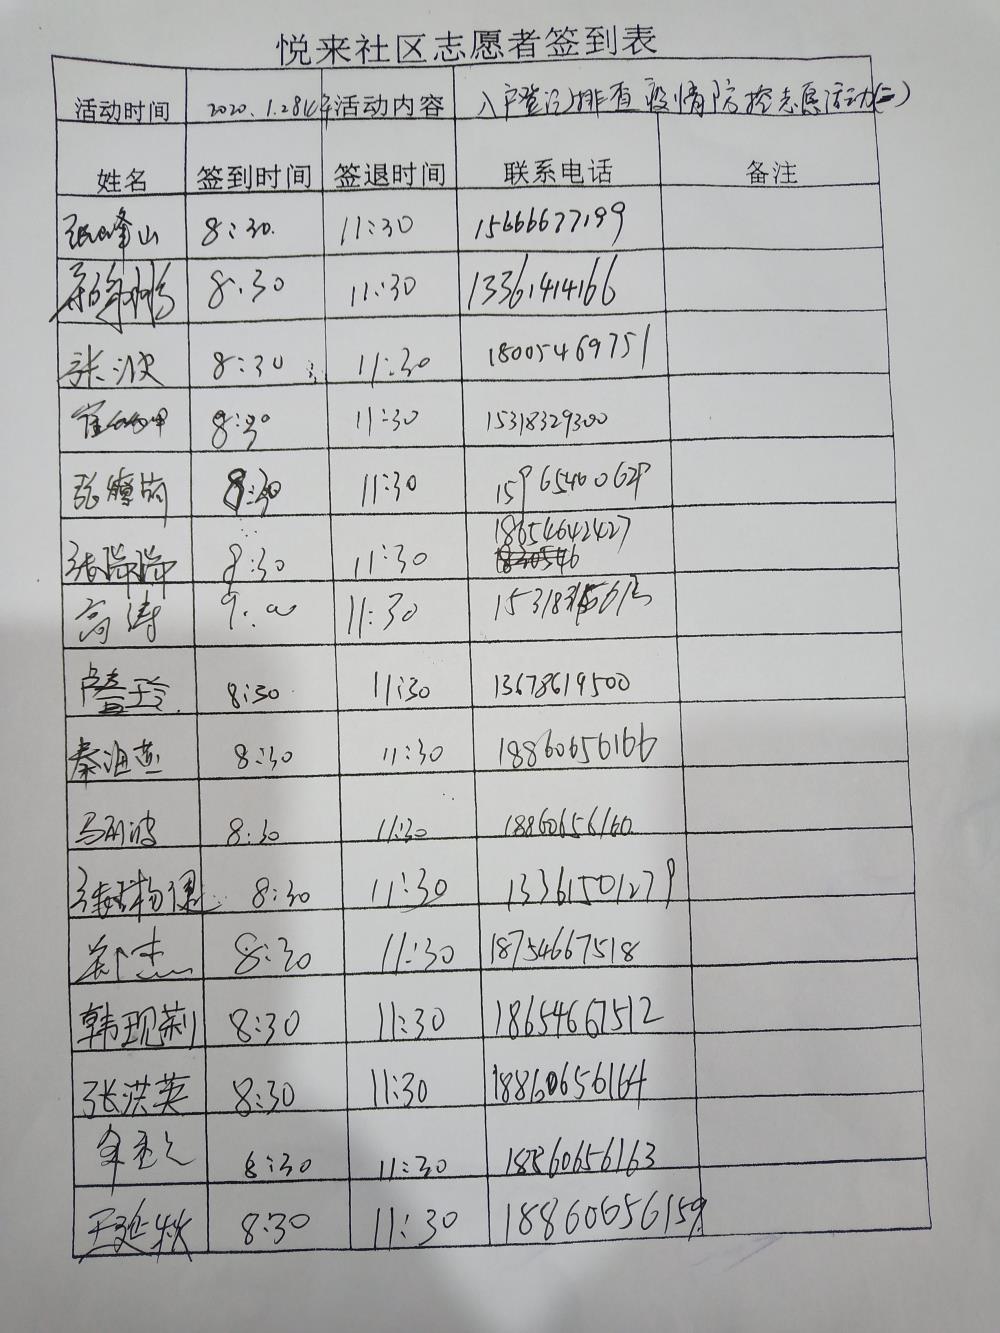 悦来社区志愿者签到表
活动时间 2020.1.28上午 活动内容 入户登记排查疫情防控志愿活动(二)
姓名 签到时间 签退时间 联系电话 备注
张峰山 8:30. 11:30 15666677199
8:30 11:30 13361414166
张波 8:30 11:30 18005469751
8:30 11:30 15318329300
8:30 11:30 15965400629
18654642427
张萍萍 8:30 11:30
高涛 9:00 11:30
8:30 11:30 13678619500
秦海燕 8:30 11:30 18860656166
8:30 11:30 18860656160
8:30 11:30 13361501279
郑杰 8:30 11:30 18754667518
韩现荆 8:30 11:30 18654667512
张洪英 8:30 11:30 18860656164
8:30 11:30 18860656163
王延秋 8:30 11:30 18860656159